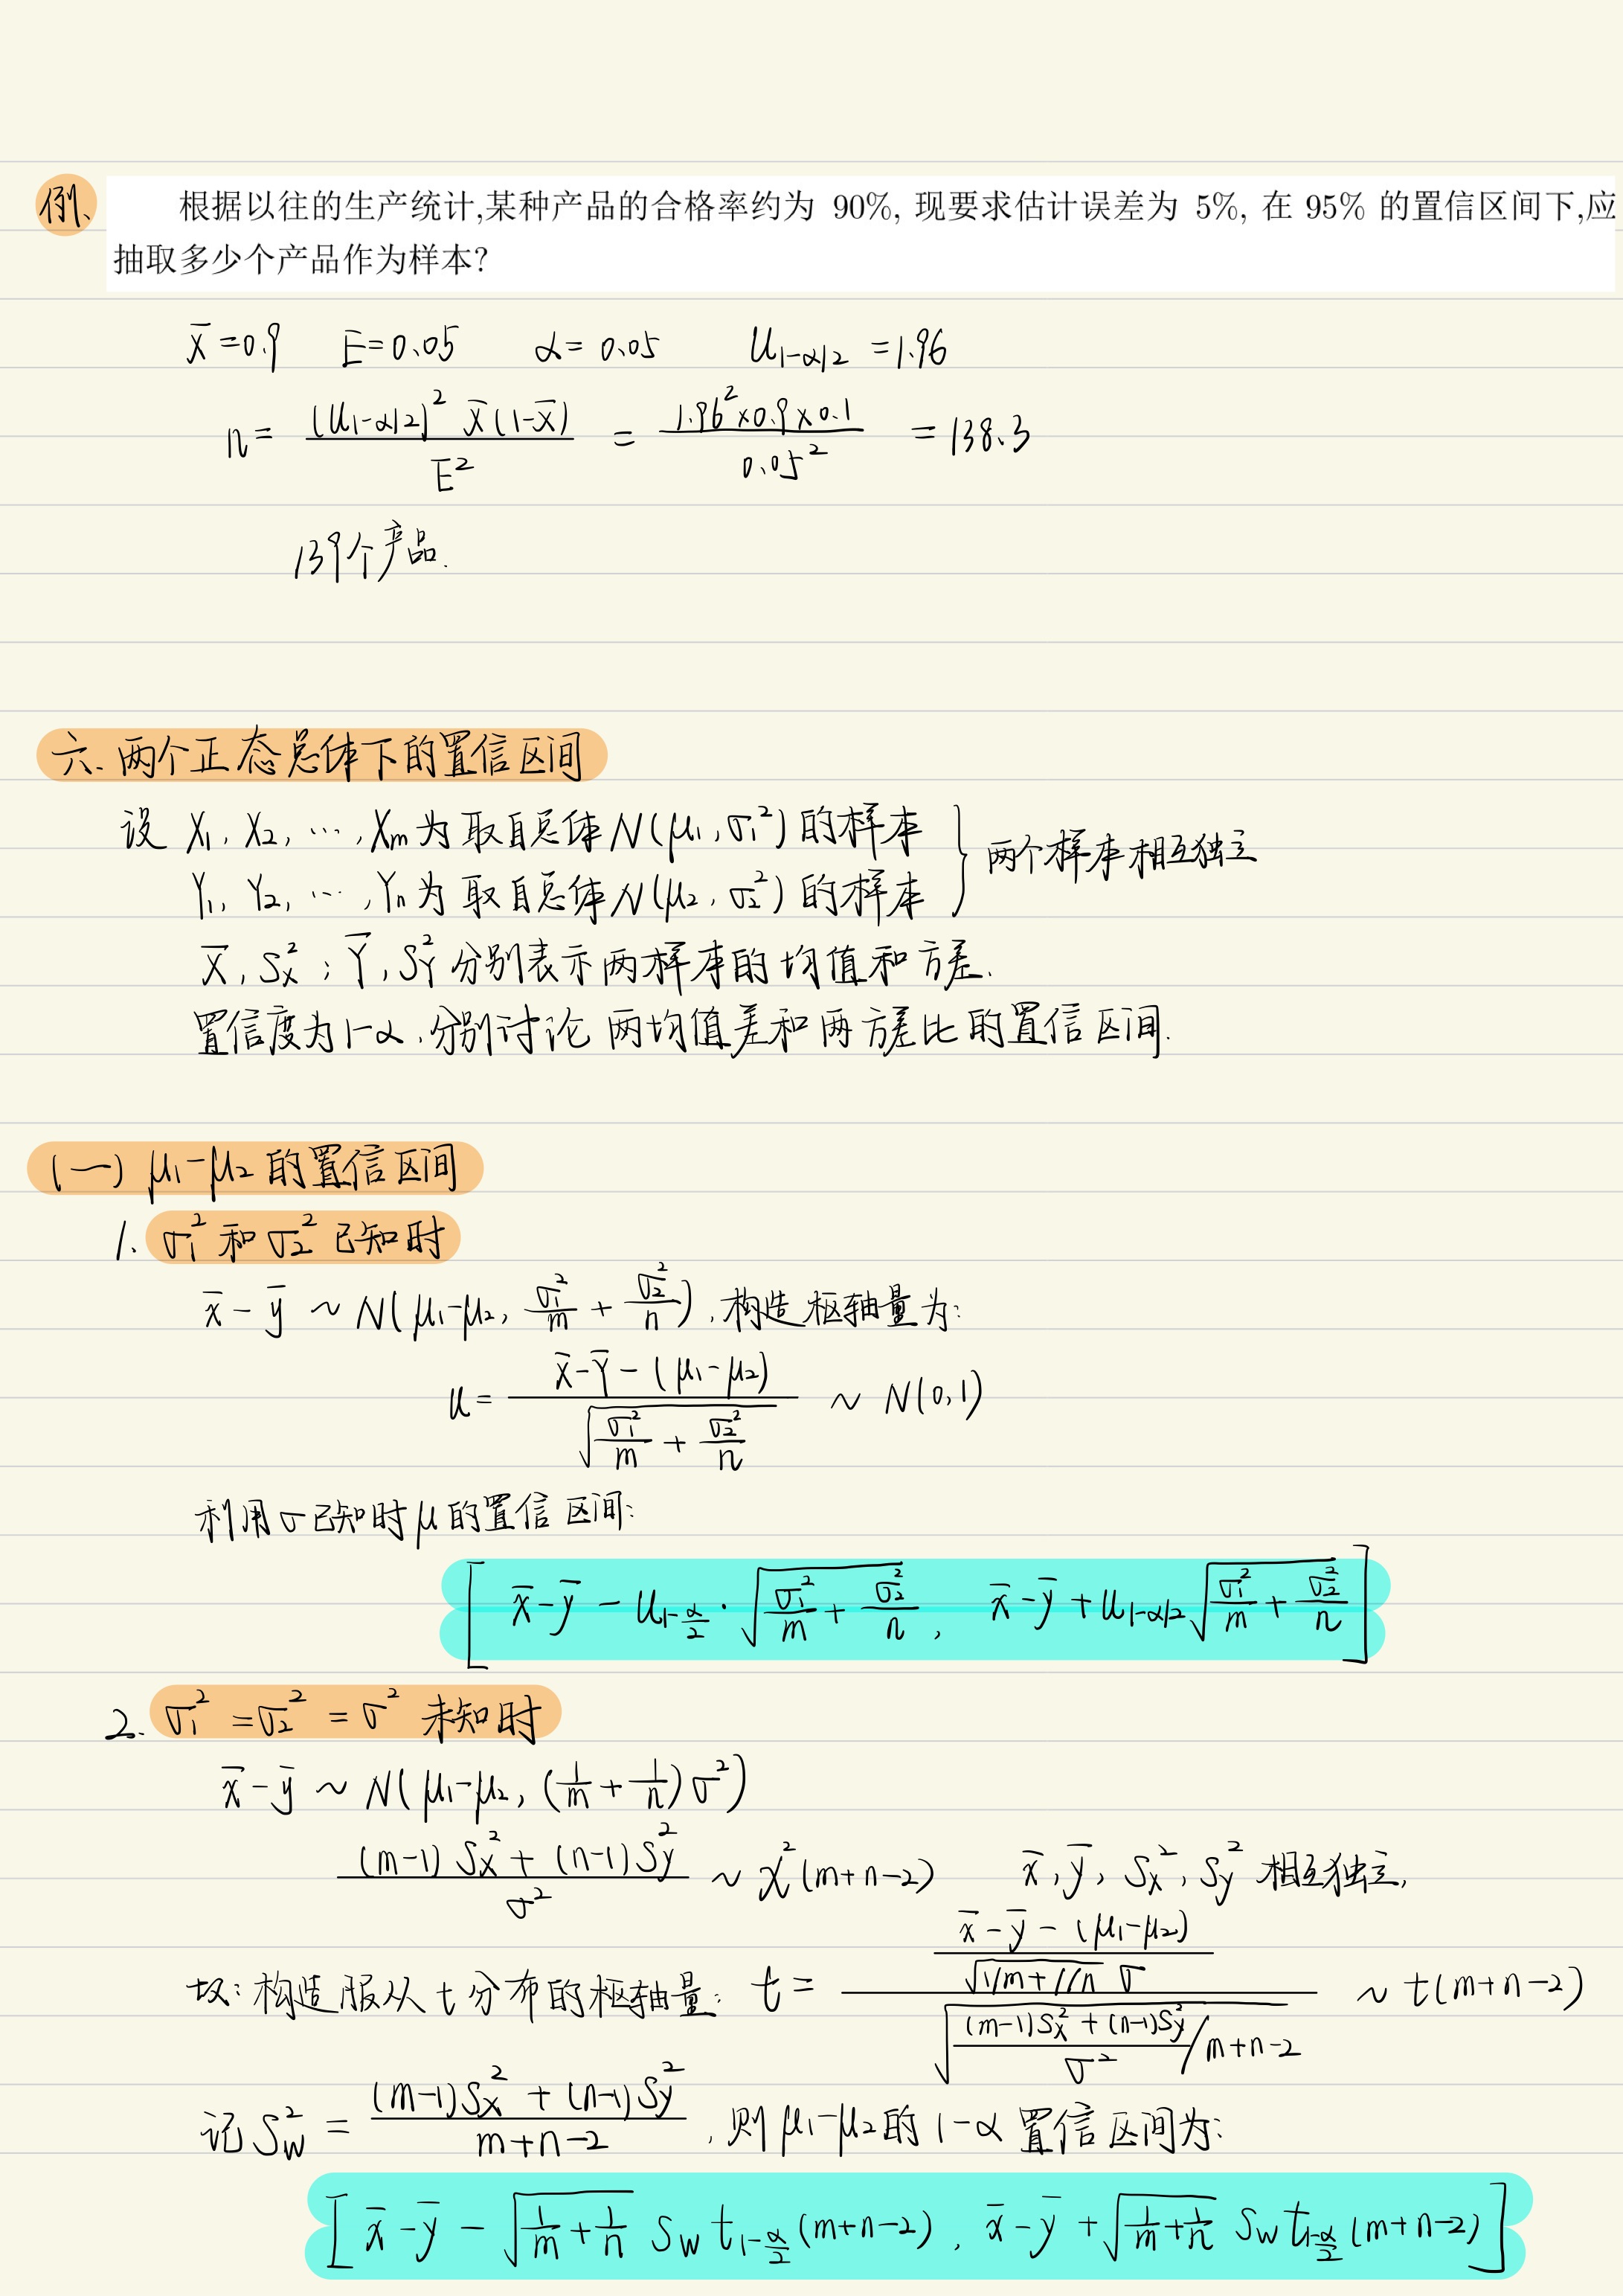 例、 根据以往的生产统计,某种产品的合格率约为 90%, 现要求估计误差为 5%, 在 95% 的置信区间下,应
抽取多少个产品作为样本?
x̄=0.9 E=0.05 α=0.05 U_{1-α/2}=1.96
n= (U_{1-α/2})² x̄(1-x̄) / E² = 1.96²×0.9×0.1 / 0.05² = 138.3
139个产品.
六. 两个正态总体下的置信区间
设 X₁, X₂, …, Xm为取自总体N(μ₁,σ₁²)的样本
Y₁, Y₂, …, Yn为取自总体N(μ₂,σ₂²)的样本 } 两个样本相互独立
X̄, Sx²; Ȳ, SY² 分别表示两样本的均值和方差.
置信度为1-α, 分别讨论两均值差和两方差比的置信区间.
(一) μ₁-μ₂的置信区间
1. σ₁²和σ₂²已知时
x̄-ȳ ~ N(μ₁-μ₂, σ₁²/m + σ₂²/n), 构造枢轴量为:
u= x̄-Ȳ-(μ₁-μ₂) / √(σ₁²/m + σ₂²/n) ~ N(0,1)
利用σ已知时μ的置信区间:
[ x̄-ȳ - U_{1-α/2}·√(σ₁²/m + σ₂²/n), x̄-ȳ + U_{1-α/2}√(σ₁²/m + σ₂²/n) ]
2. σ₁²=σ₂²=σ² 未知时
x̄-ȳ ~ N(μ₁-μ₂, (1/m + 1/n)σ²)
(m-1)Sx² + (n-1)Sy² / σ² ~ χ²(m+n-2) x̄, ȳ, Sx², Sy² 相互独立,
故: 构造服从t分布的枢轴量: t= [x̄-ȳ-(μ₁-μ₂) / √(1/m+1/n) σ] / √((m-1)Sx²+(n-1)Sy² / σ² / m+n-2) ~ t(m+n-2)
记 Sw² = (m-1)Sx² + (n-1)Sy² / m+n-2, 则μ₁-μ₂的1-α置信区间为:
[ x̄-ȳ - √(1/m + 1/n) Sw t_{1-α/2}(m+n-2), x̄-ȳ + √(1/m + 1/n) Sw t_{1-α/2}(m+n-2) ]